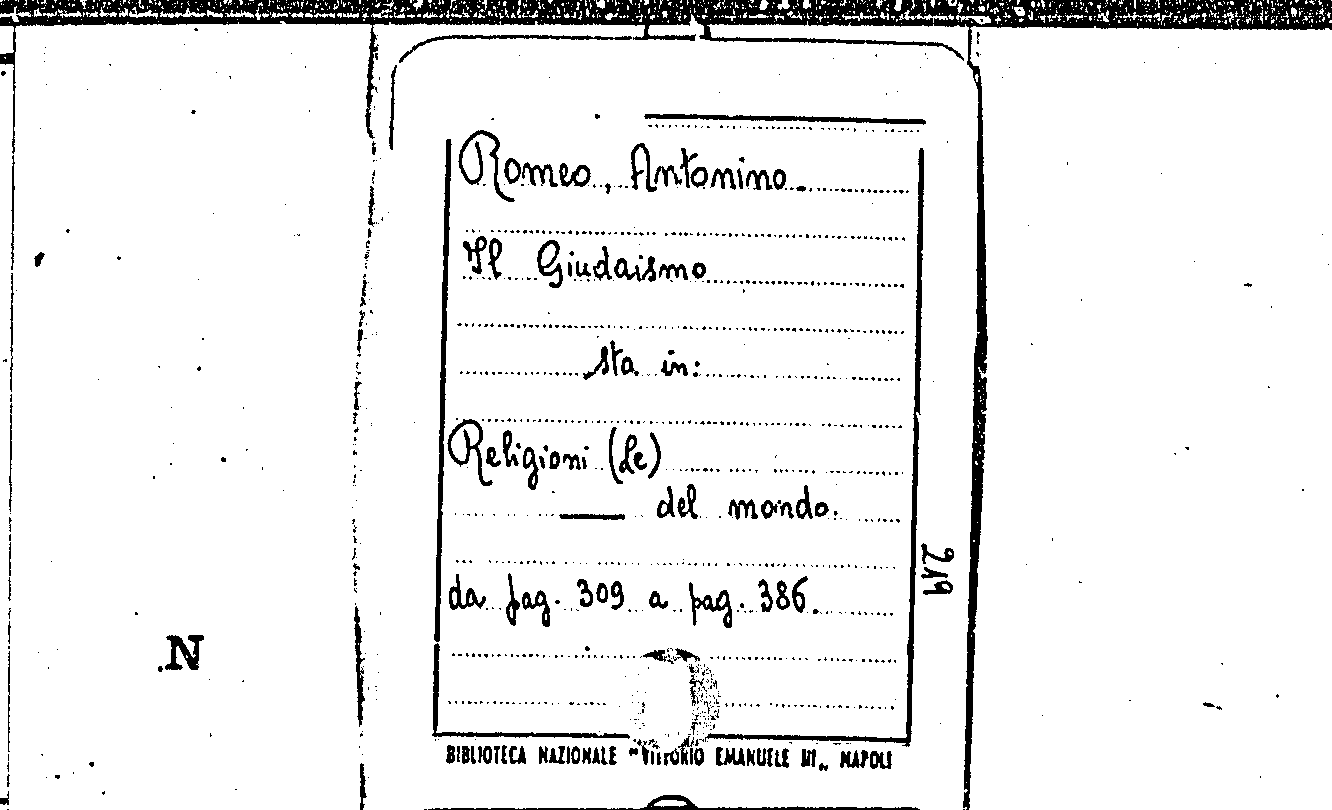 Romeo, Antonino.
Il Giudaismo
sta in:
Religioni (Le)
—— del mondo.
da pag. 309 a pag. 386.
219
N
BIBLIOTECA NAZIONALE "VITTORIO EMANUELE III„ NAPOLI